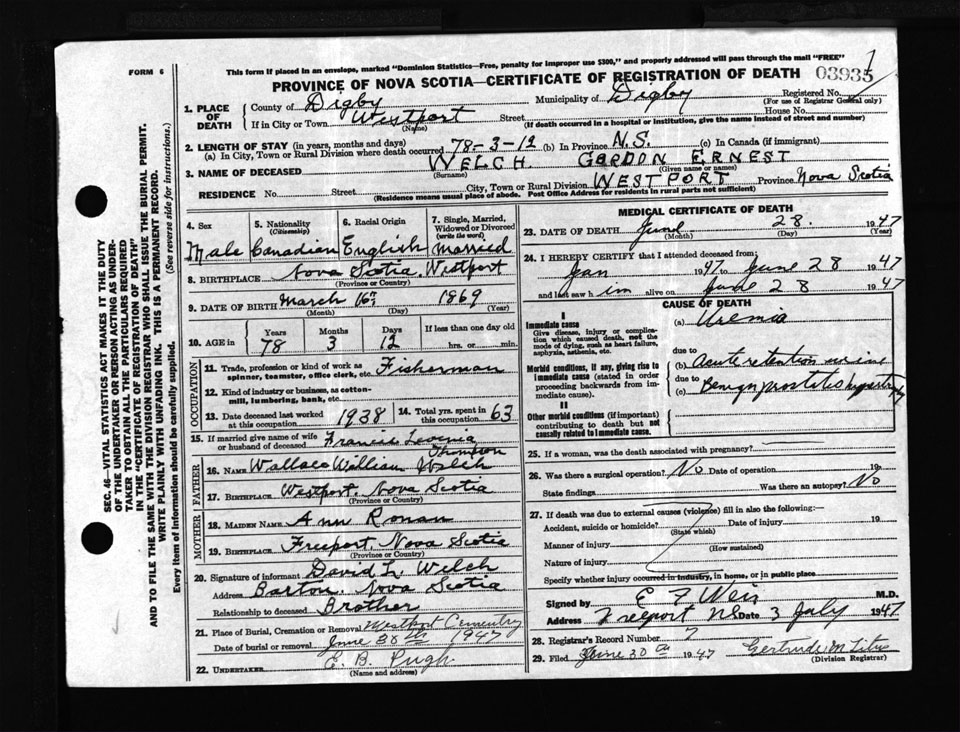 FORM 6
This form if placed in an envelope, marked "Dominion Statistics—Free, penalty for improper use $300," and properly addressed will pass through the mail "FREE"
PROVINCE OF NOVA SCOTIA—CERTIFICATE OF REGISTRATION OF DEATH
03935
1. PLACE OF DEATH
County of Digby Municipality of Digby Registered No.
(For use of Registrar General only)
If in City or Town Westport Street House No.
(Name) (If death occurred in a hospital or institution, give the name instead of street and number)
2. LENGTH OF STAY (in years, months and days)
(a) In City, Town or Rural Division where death occurred 78-3-12 (b) In Province N.S. (c) In Canada (if immigrant)
3. NAME OF DECEASED WELCH. GORDON ERNEST
(Surname) (Given name or names)
RESIDENCE No. Street City, Town or Rural Division WESTPORT Province Nova Scotia
(Residence means usual place of abode. Post Office Address for residents in rural parts not sufficient)
4. Sex Male
5. Nationality (Citizenship) Canadian
6. Racial Origin English
7. Single, Married, Widowed or Divorced (write the word) Married
8. BIRTHPLACE Nova Scotia, Westport
(Province or Country)
9. DATE OF BIRTH March 16th 1869
(Month) (Day) (Year)
10. AGE in Years 78 Months 3 Days 12 If less than one day old hrs. or min.
OCCUPATION
11. Trade, profession or kind of work as spinner, teamster, office clerk, etc. Fisherman
12. Kind of industry or business, as cotton-mill, lumbering, bank, etc.
13. Date deceased last worked at this occupation 1938 14. Total yrs. spent in this occupation 63
15. If married give name of wife or husband of deceased Francis Thompson
FATHER
16. NAME Wallace William Welch
17. BIRTHPLACE Westport. Nova Scotia
MOTHER
18. MAIDEN NAME Ann Ronan
19. BIRTHPLACE Freeport. Nova Scotia
(Province or Country)
20. Signature of informant David L Welch
Address Barton. Nova Scotia
Relationship to deceased Brother
21. Place of Burial, Cremation or Removal Westport Cementry
Date of burial or removal June 30th 1947
22. UNDERTAKER E. B. Pugh
(Name and address)
MEDICAL CERTIFICATE OF DEATH
23. DATE OF DEATH June 28. 1947
(Month) (Day) (Year)
24. I HEREBY CERTIFY that I attended deceased from:
Jan 1947 to June 28 1947
and last saw h im alive on June 28 1947
CAUSE OF DEATH
I
Immediate cause
Give disease, injury or complication which caused death, not the mode of dying, such as heart failure, asphyxia, asthenia, etc.
(a) Uremia
due to
Morbid conditions, if any, giving rise to immediate cause (stated in order proceeding backwards from immediate cause).
(b) Acute retention urine
due to
(c) Benign
II
Other morbid conditions (if important) contributing to death but not causally related to immediate cause.
25. If a woman, was the death associated with pregnancy?
26. Was there a surgical operation? No Date of operation 19
State findings Was there an autopsy? No
27. If death was due to external causes (violence) fill in also the following:—
Accident, suicide or homicide? Date of injury 19
(State which)
Manner of injury
(How sustained)
Nature of injury
Specify whether injury occurred in industry, in home, or in public place
Signed by E F Weir M.D.
Address Freeport N.S. Date 3 July 1947
28. Registrar's Record Number 7
29. Filed June 30th 1947 Gertrude M Titus
(Division Registrar)
SEC. 46—VITAL STATISTICS ACT MAKES IT THE DUTY
OF THE UNDERTAKER OR PERSON ACTING AS UNDER-
TAKER TO OBTAIN ALL THE PARTICULARS REQUIRED
IN THE "CERTIFICATE OF REGISTRATION OF DEATH"
AND TO FILE THE SAME WITH THE DIVISION REGISTRAR WHO SHALL ISSUE THE BURIAL PERMIT.
WRITE PLAINLY WITH UNFADING INK. THIS IS A PERMANENT RECORD.
Every item of information should be carefully supplied. (See reverse side for instructions.)